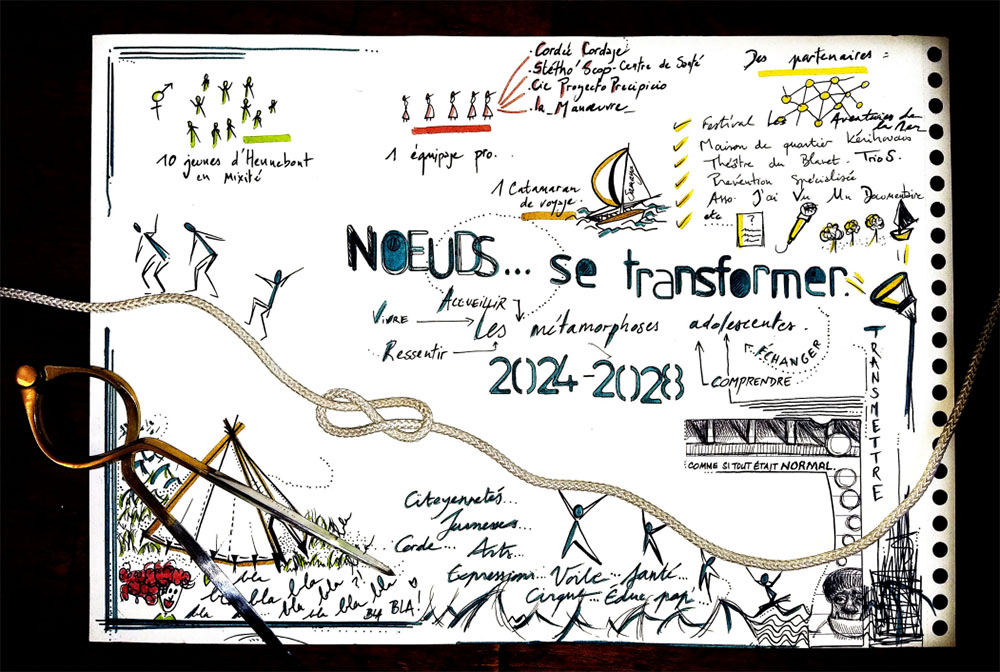 10 jeunes d'Hennebont
en mixité
1 équipage pro.
. Cordée Cordage
. Stétho'Scop - Centre de Santé
. Cie Proyecto Precipicio
. la Manœuvre
Des partenaires =
Festival Les Aventuriers de
la Mer
Maison de quartier Kérihouais
Théâtre du Blavet . Trio S.
Prévention Spécialisée
Asso J'ai Vu Un Documentaire
etc
?
1 Catamaran
de voyage
NOEUDS... se transformer.
ACCUEILLIR
VIVRE
Les métamorphoses adolescentes.
Ressentir
ÉCHANGER
2024-2028
COMPRENDRE
TRANSMETTRE
COMME SI TOUT ÉTAIT NORMAL.
Citoyennetés...
Jeunesses...
Corde... Arts...
Expressions Voile... Santé...
Cirque... Educ pop'
bla
bla bla bla bla bla bla
bla bla bla bla
BLA BLA!